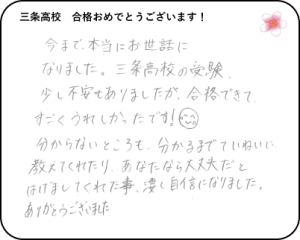 三条高校　合格おめでとうございます！
今まで、本当にお世話に
なりました。三条高校の受験、
少し不安もありましたが、合格できて、
すごくうれしかったです！
分からないところも、分かるまでていねいに
教えてくれたり、あなたなら大丈夫だと
はげましてくれた事、凄く自信になりました。
ありがとうございました